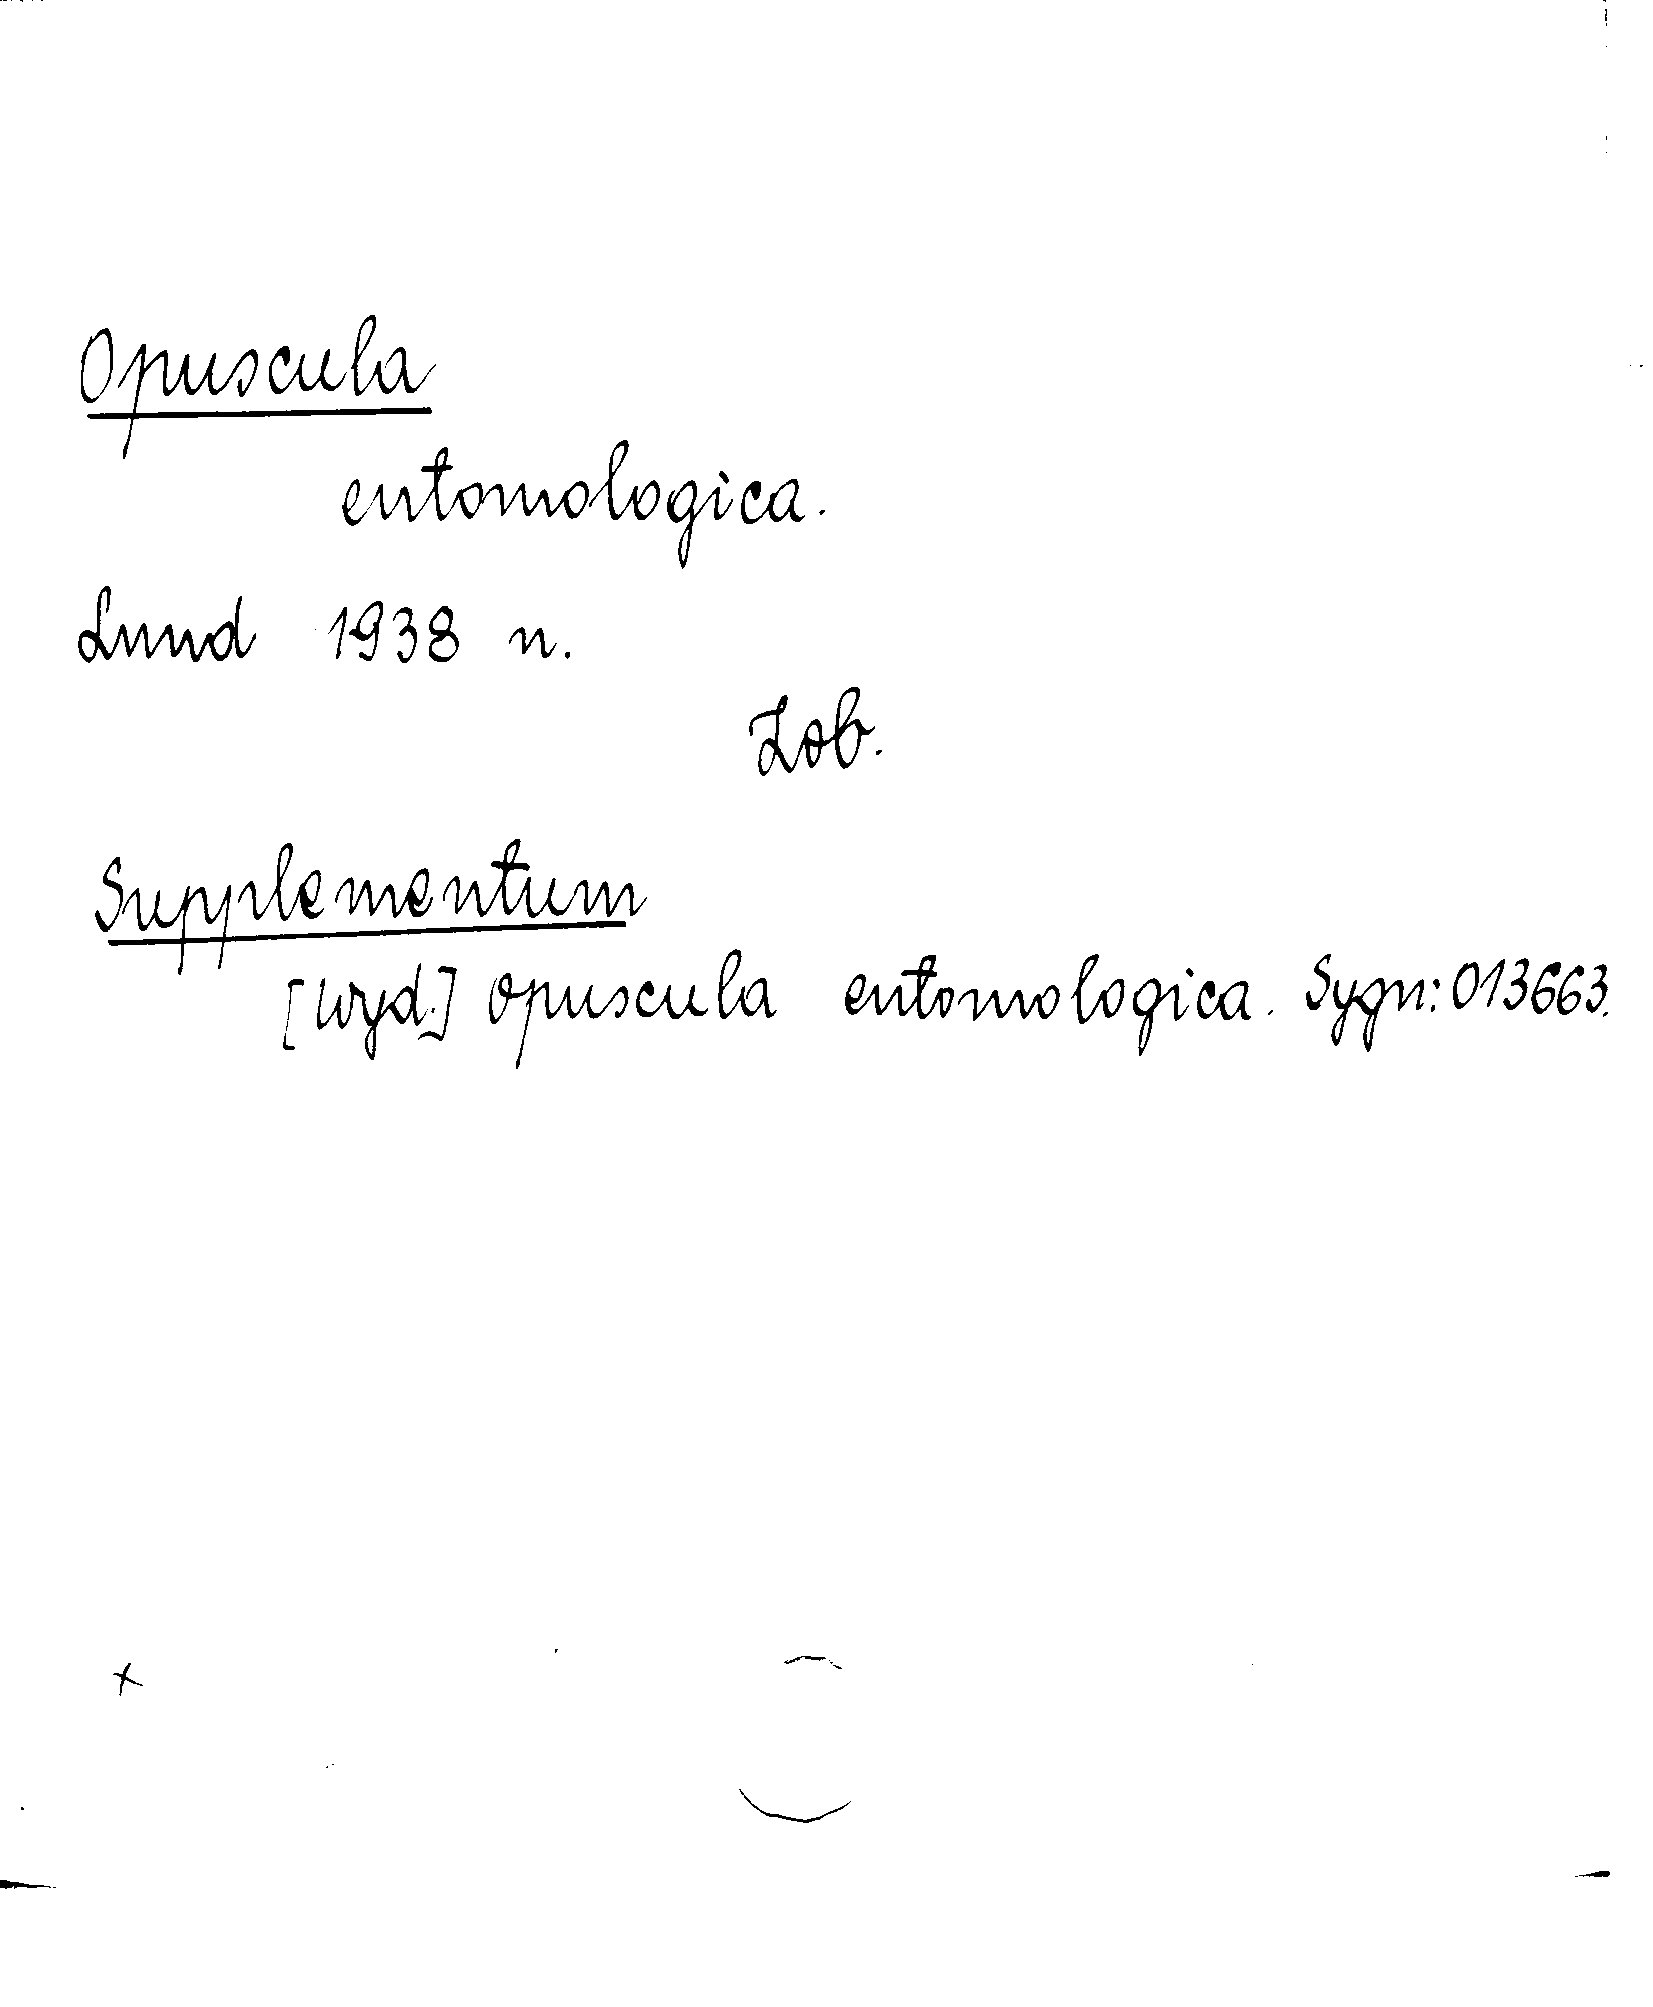 Opuscula
entomologica.
Lund 1938 n.
Zob.
Supplementum
[Wyd.] Opuscula entomologica. Sygn: 013663.
x